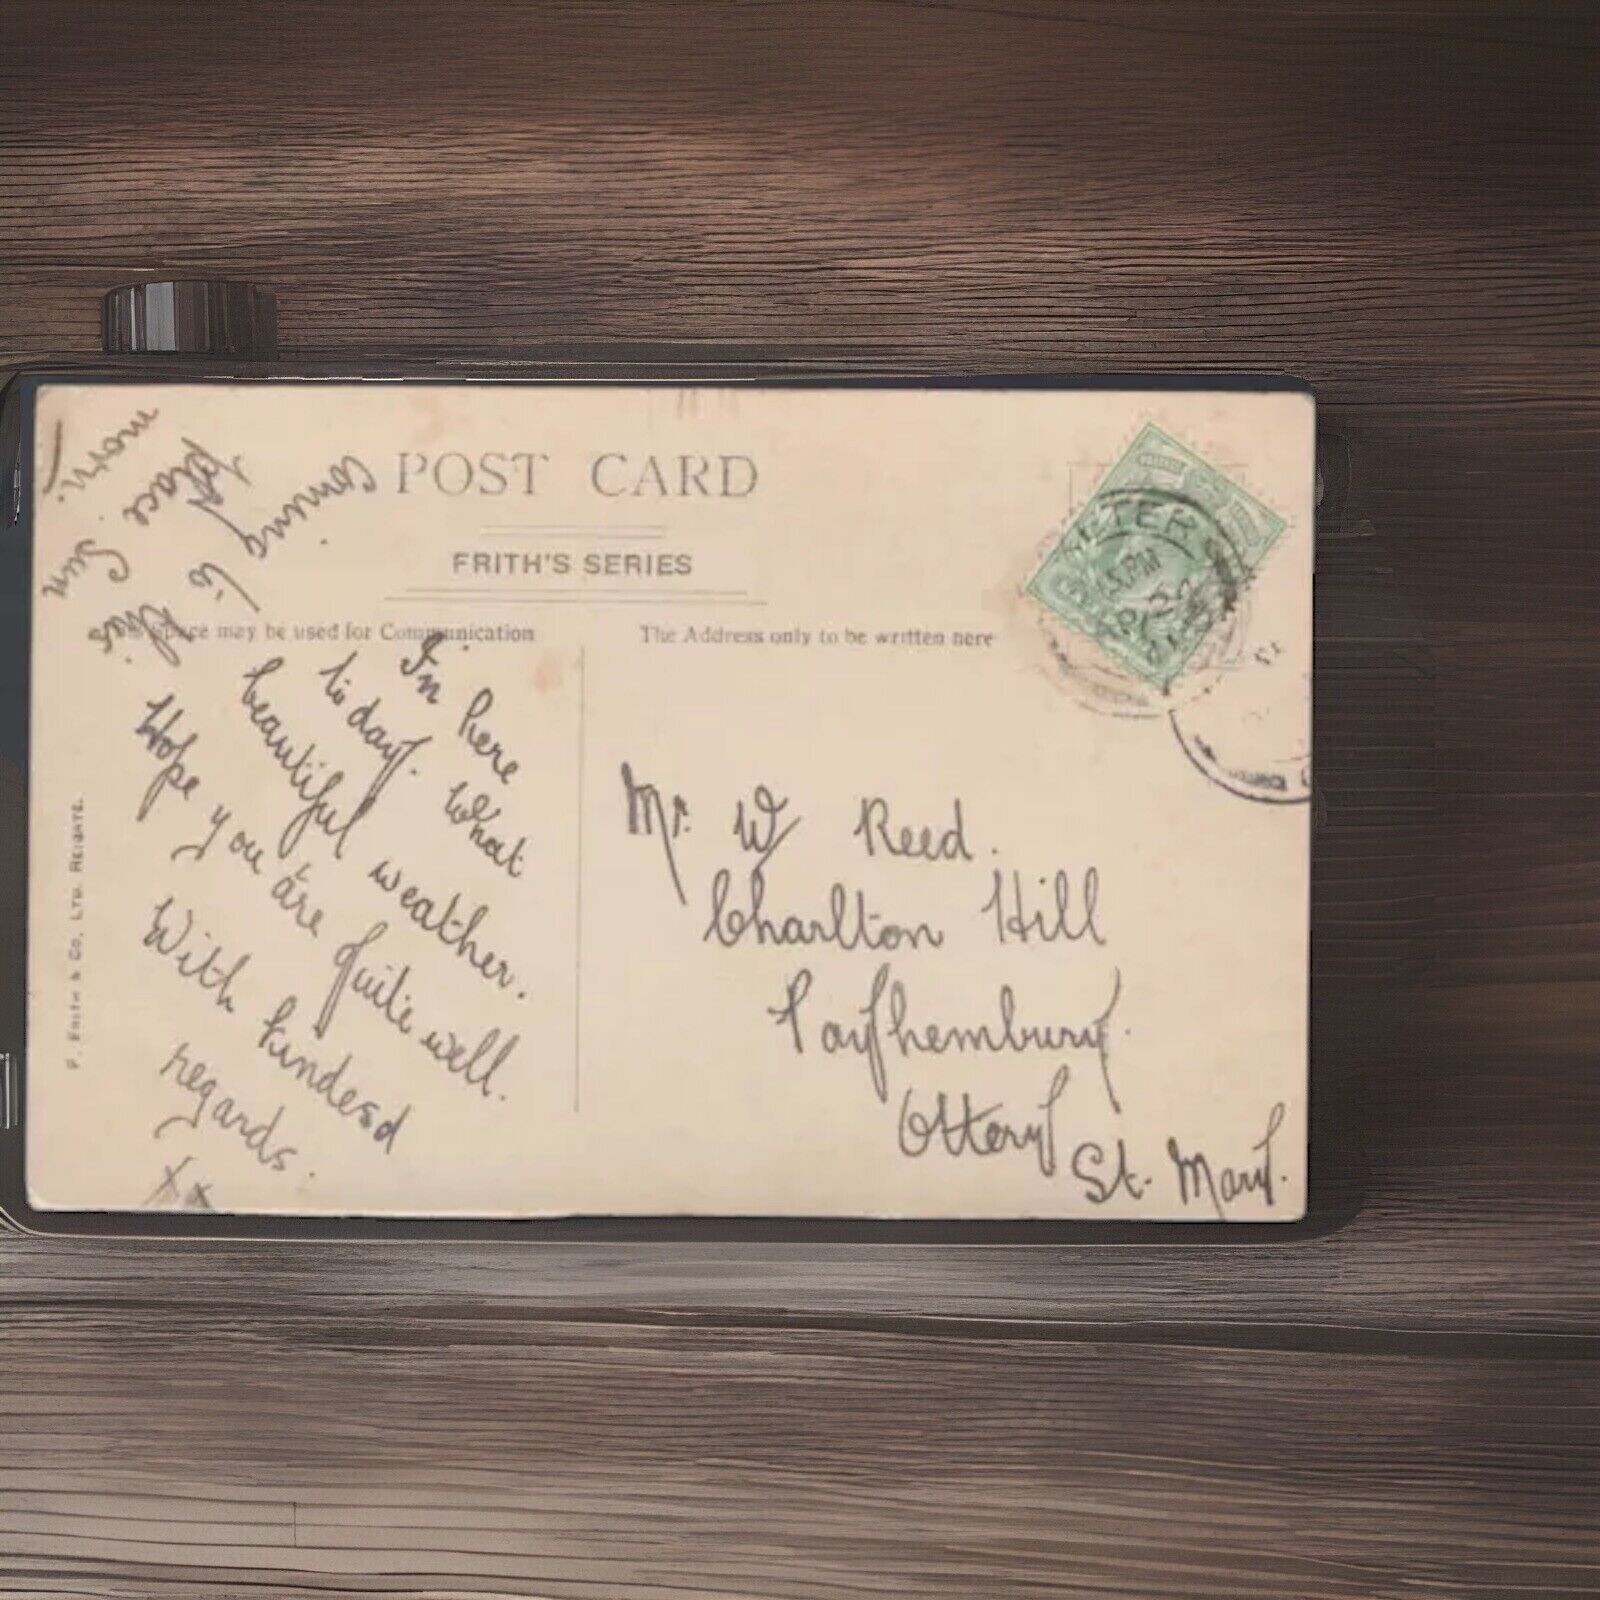 POST CARD
FRITH'S SERIES
This space may be used for Communication
The Address only to be written here
In here
to day. What
beautiful weather.
Hope you are quite well.
With kindesd
regards.
x x
coming to
this
place Sun
morn.
Mr. W Reed.
Charlton Hill
Payhembury.
Ottery
St. Mary.
F. FRITH & CO. LTD. REIGATE.